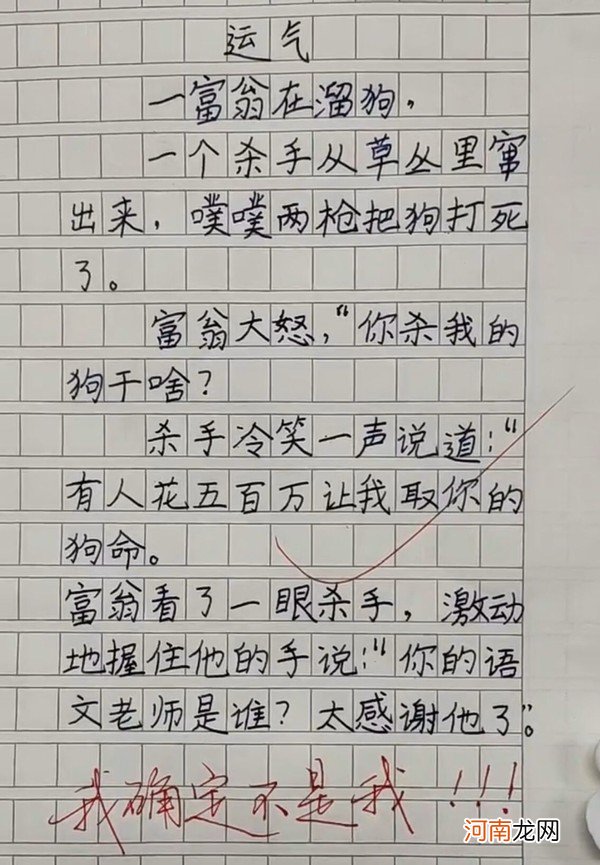 运气
一富翁在溜狗，
一个杀手从草丛里窜
出来，噗噗两枪把狗打死
了。
富翁大怒，“你杀我的
狗干啥？
杀手冷笑一声说道：“
有人花五百万让我取你的
狗命。
富翁看了一眼杀手，激动
地握住他的手说：“你的语
文老师是谁？太感谢他了”。
我确定不是我！！！
河南龙网